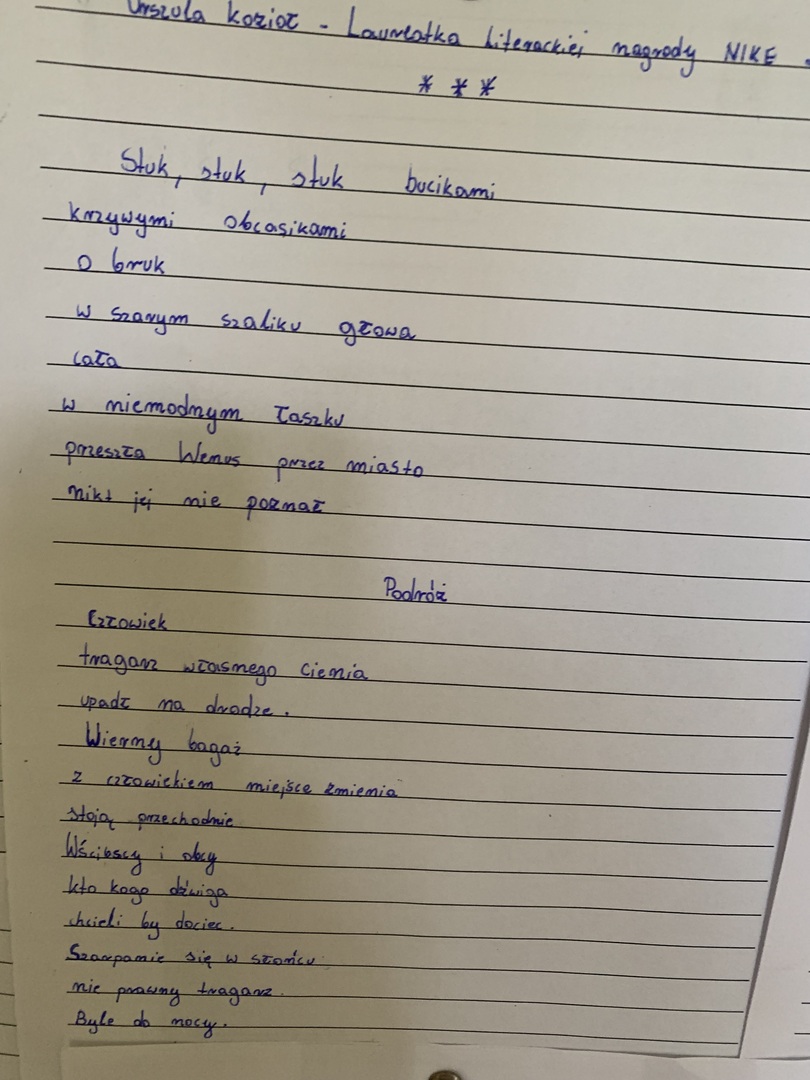 Urszula Kozioł - Laureatka literackiej nagrody NIKE.
* * *
Stuk, stuk, stuk bucikami
krzywymi obcasikami
o bruk
w szarym szaliku głowa
cała
w niemodnym łaszku
przeszła Wenus przez miasto
nikt jej nie poznał
Podróż
Człowiek
tragarz własnego cienia
upadł na drodze.
Wierny bagaż
z człowiekiem miejsce zmienia
stoją przechodnie
Wścibscy i obcy
kto kogo dźwiga
chcieli by dociec.
Szarpanie się w słońcu
nie prawny tragarz.
Byle do nocy.